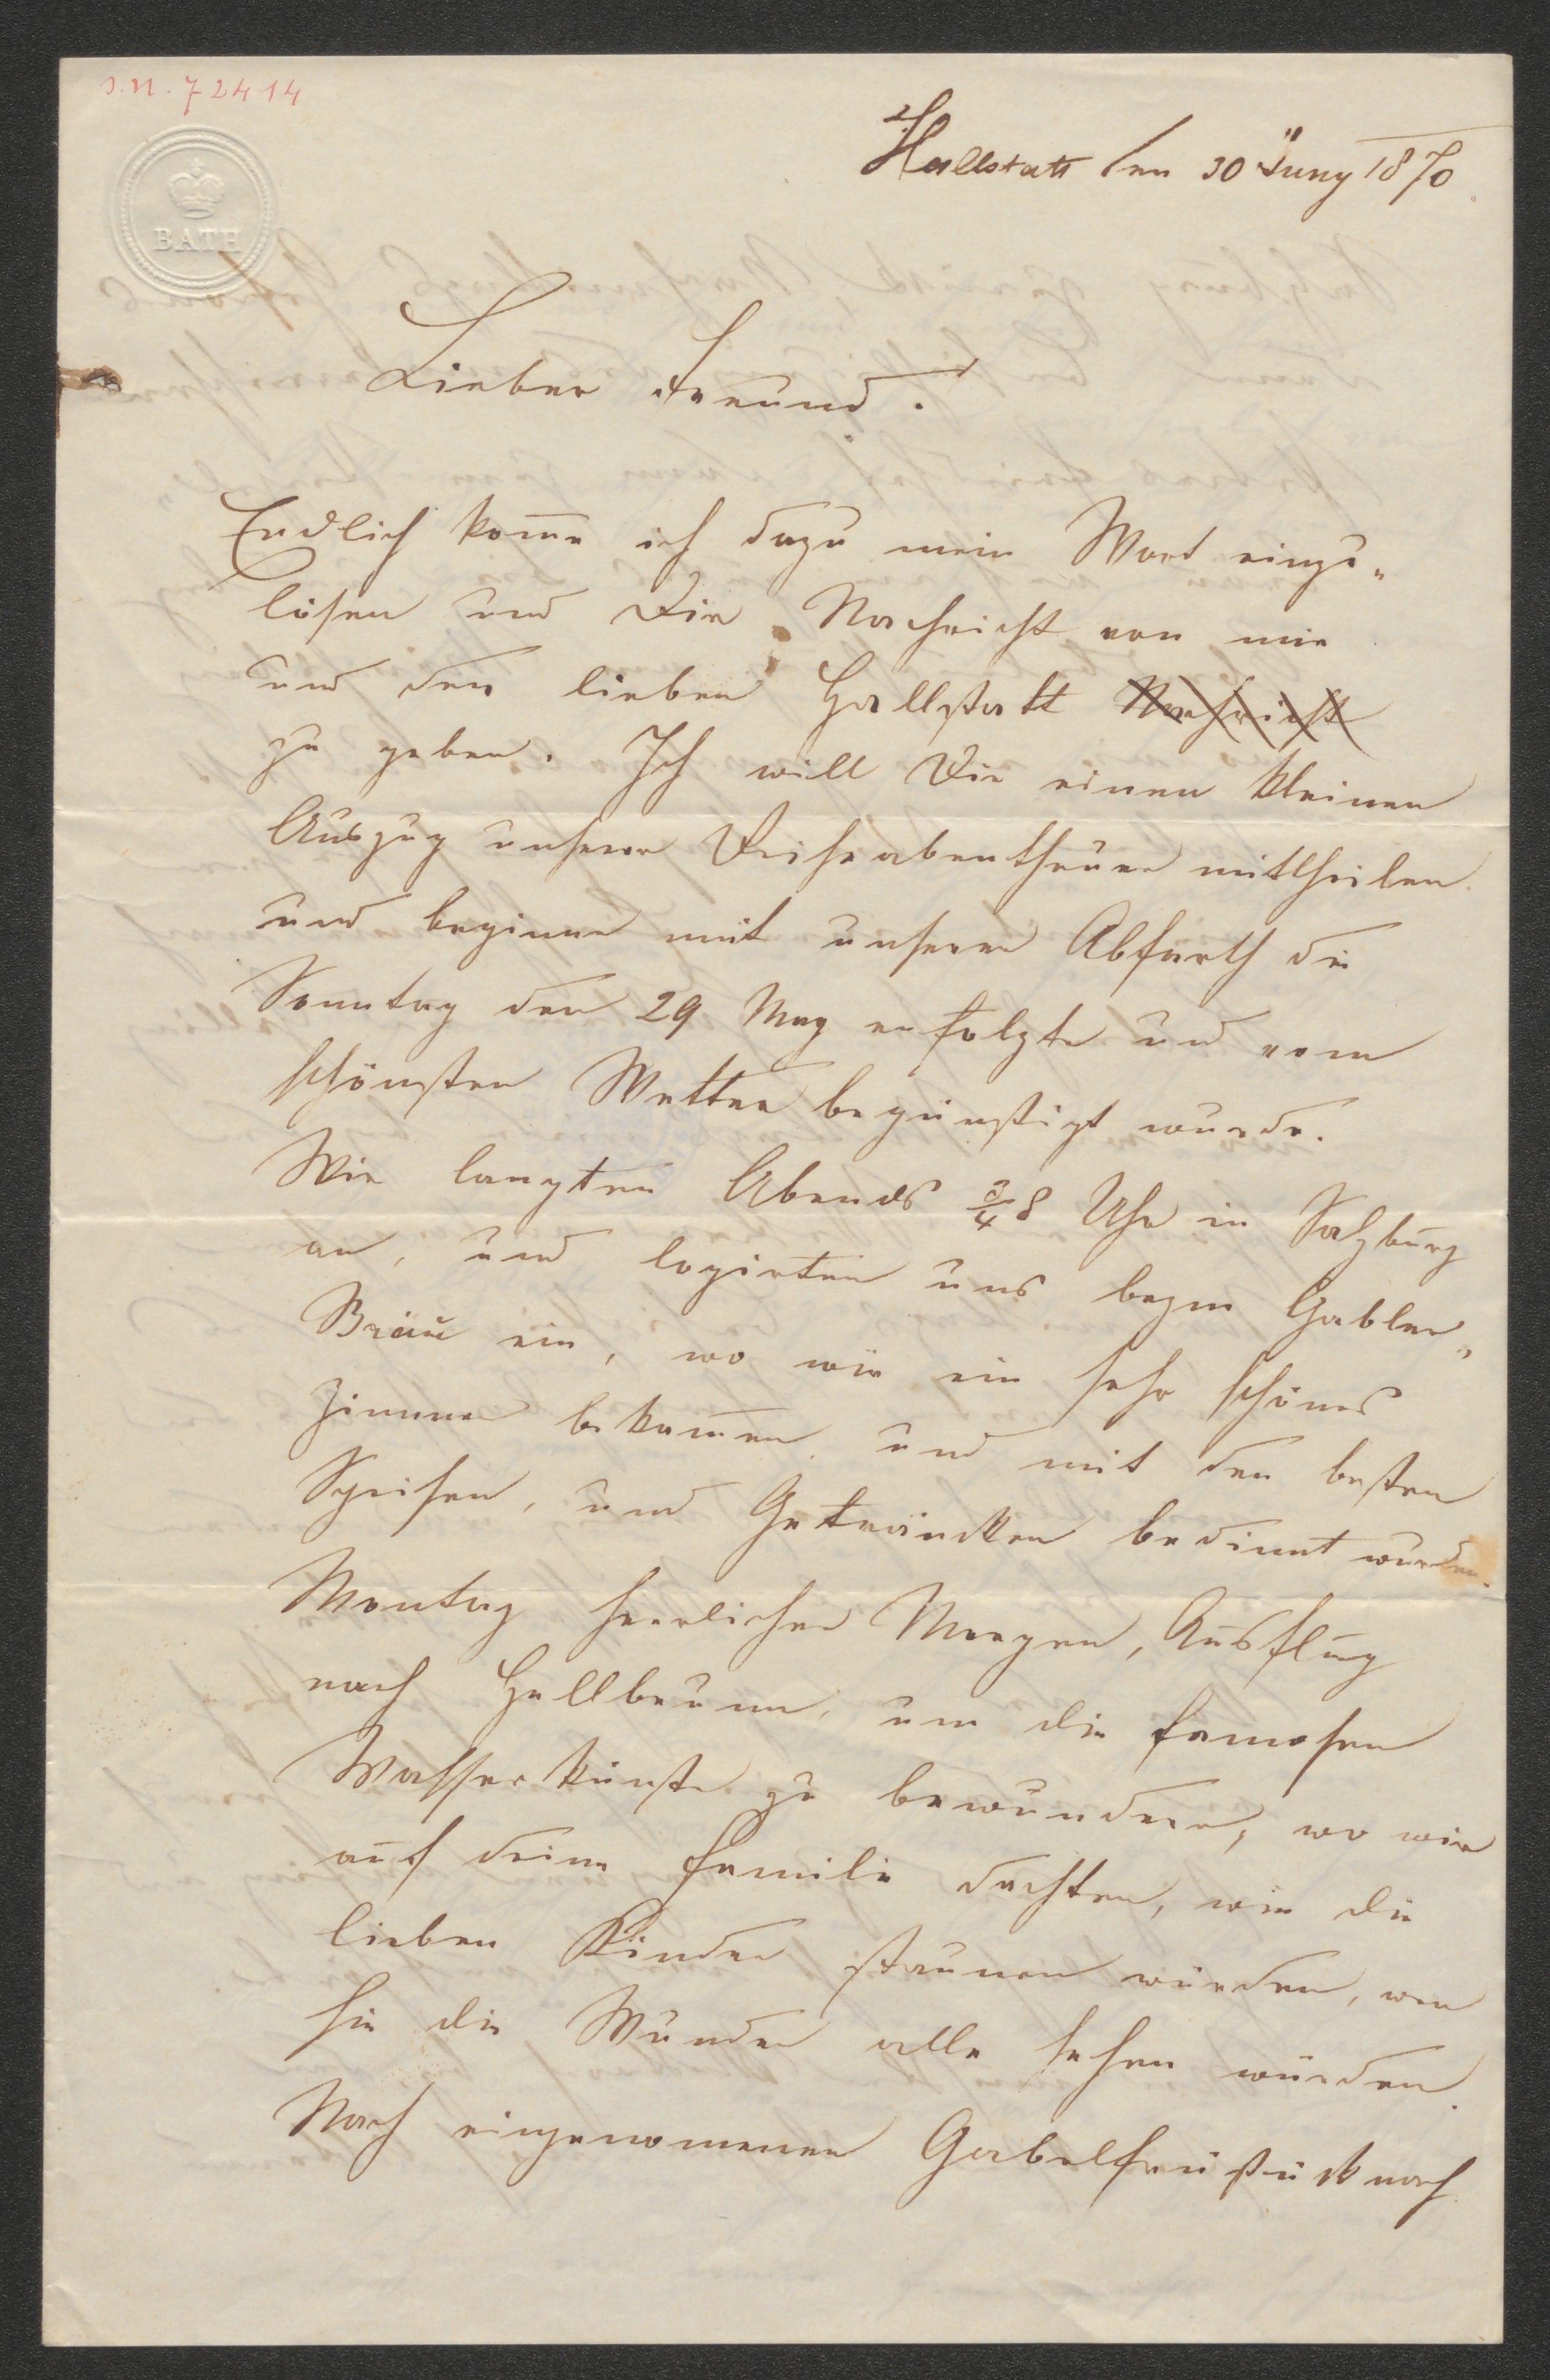 J.N. 72414
BATH
Hallstatt den 30 Juny 1870
Lieber Freund.
Endlich kom̅e ich dazu mein Wort einzu„
lösen und Dir Nachricht von mir
und den lieben Hallstatt Nachricht
zu geben. Ich will Dir einen kleinen
Auszug unserer Reiseabentheuer mittheilen
und beginne mit unserer Abfarth die
Sonntag den 29 May erfolgte und vom
schönsten Wetter begünstigt wurde.
Wir langten Abends ¾ 8 Uhr in Salzburg
an, und logirten uns beym Gabler„
Bräu ein, wo wir ein sehr schönes
Zimmer bekam̅en und mit den besten
Speisen, und Geträncken bedient wurden.
Montag herrlicher Morgen, Ausflug
nach Hellbrunn, um die famosen
Wasserkünste zu bewundern, wo wir
auf deine Familie dachten, wie die
lieben Kinder staunen würden, wen
sie die Wunder alle sehen würden.
Nach eingenomenen Gabelfrüstück nach